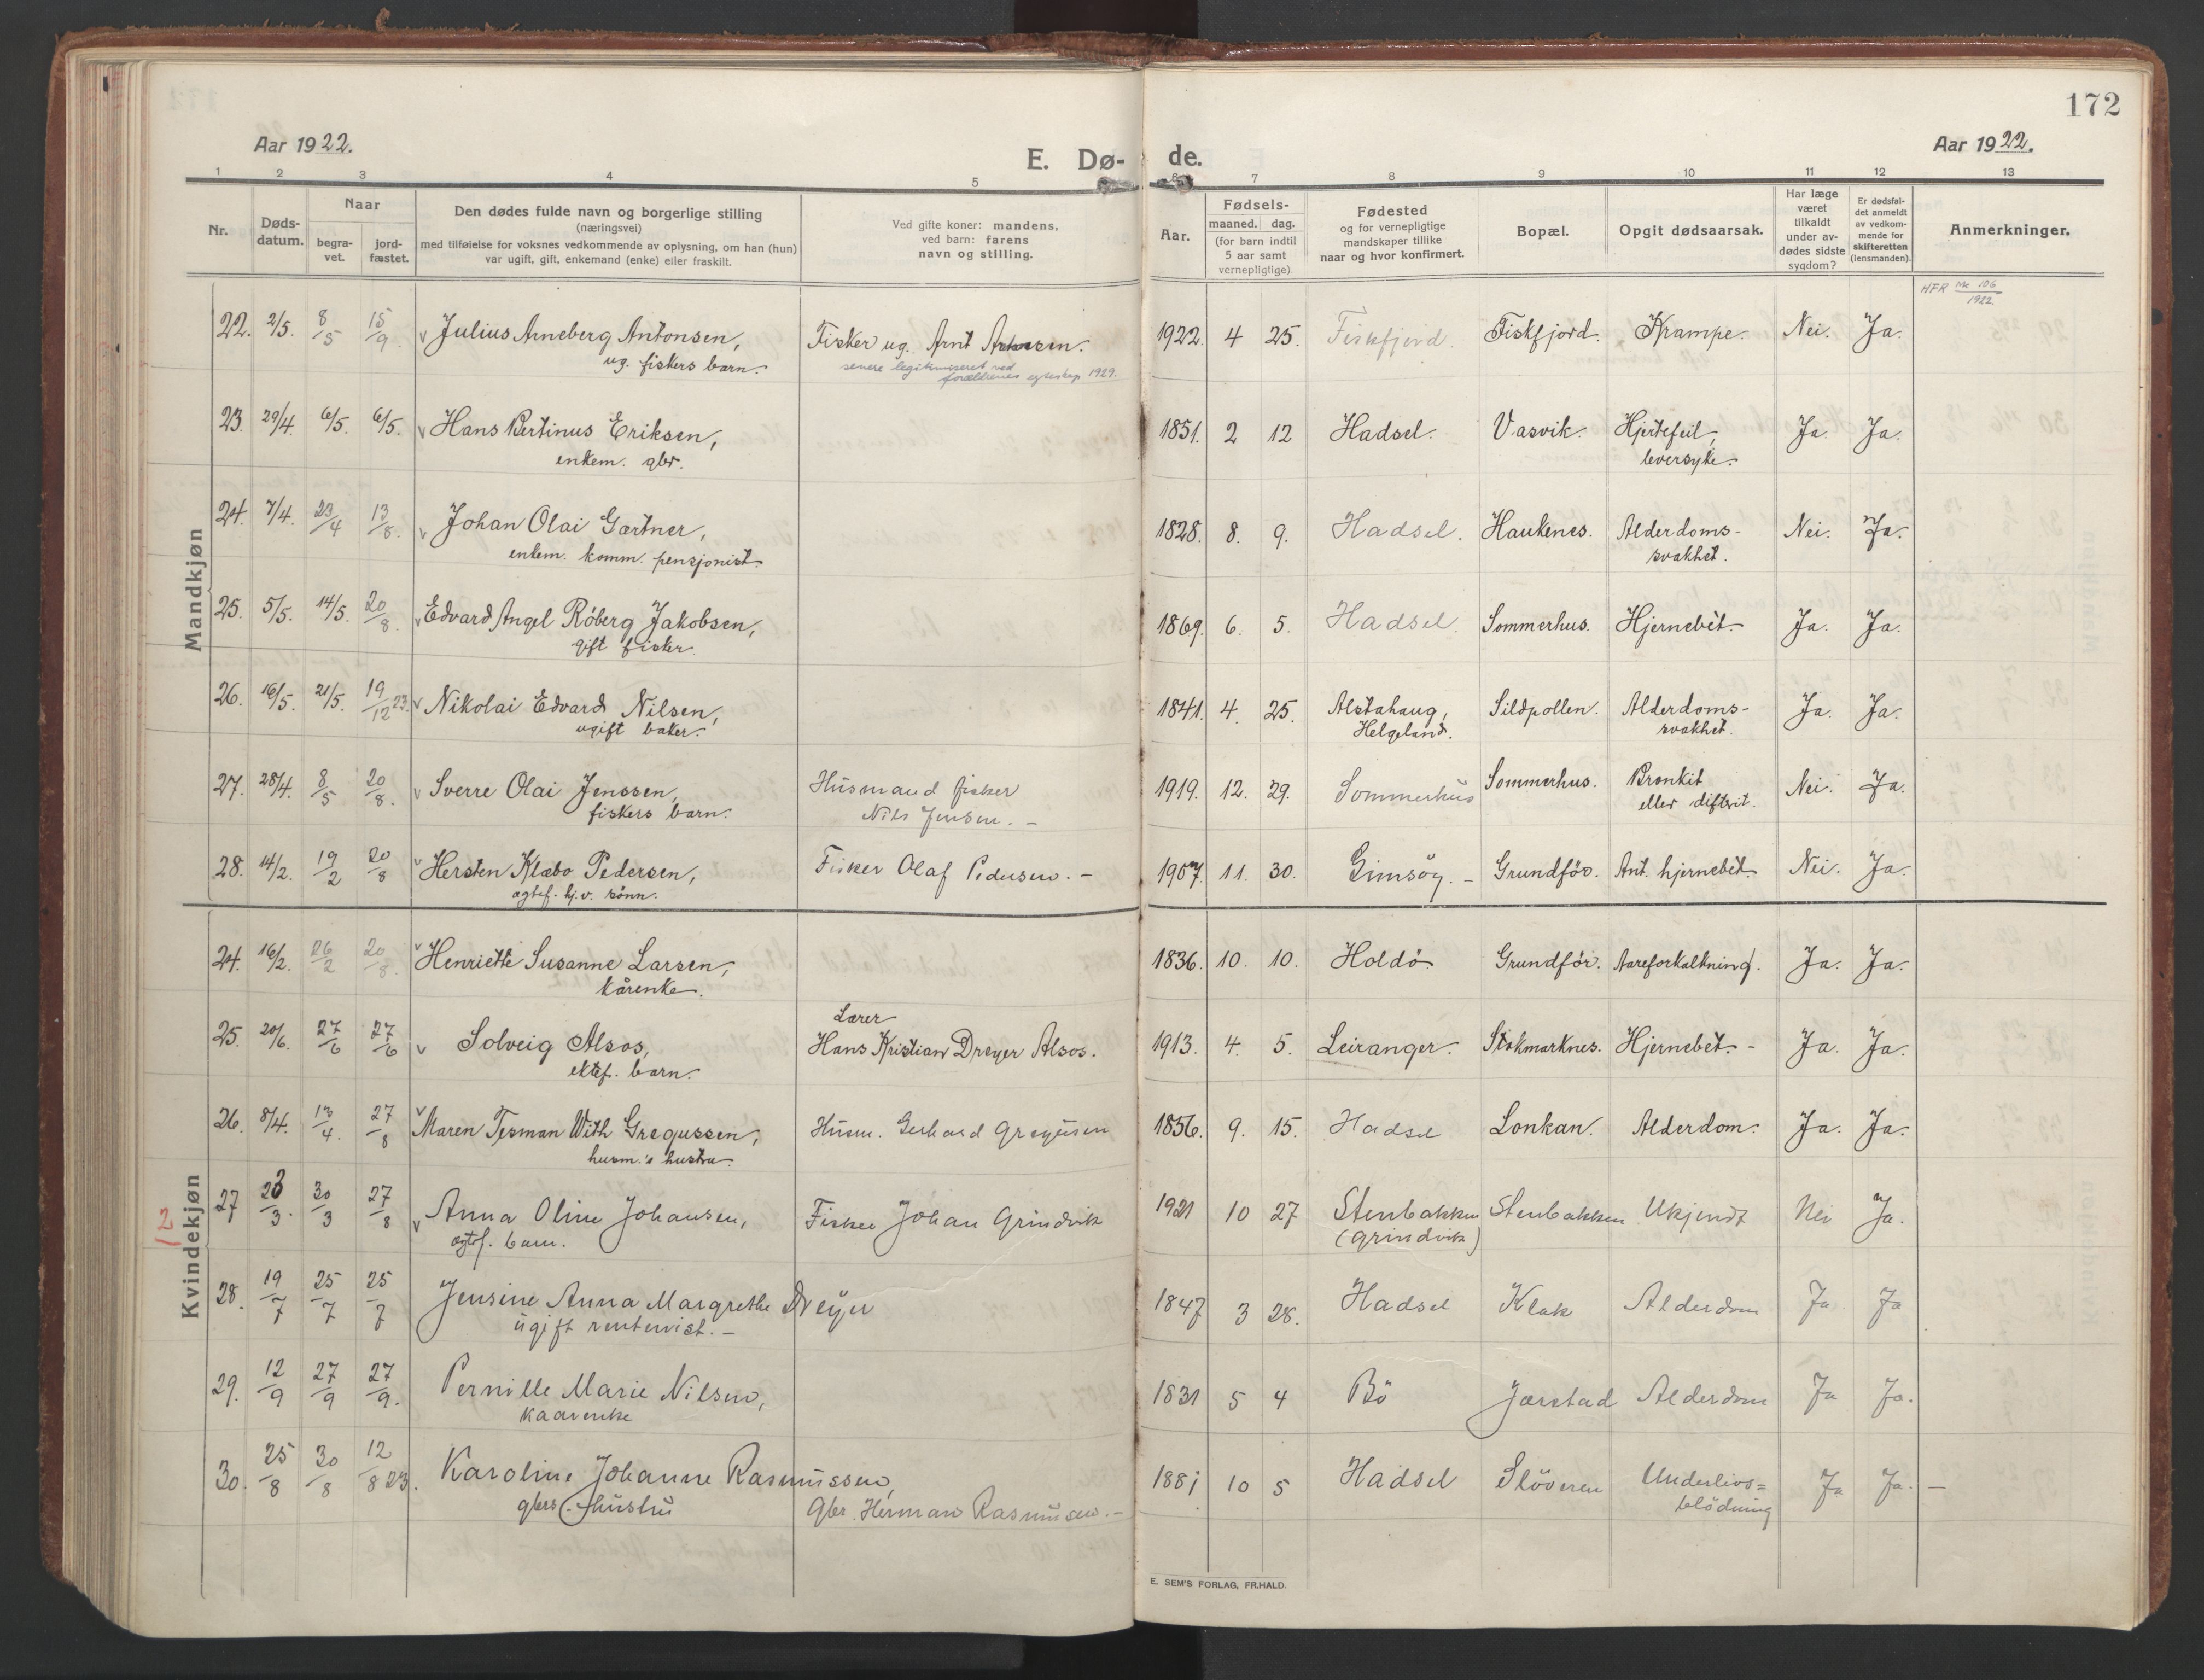 172
Aar 1922.
E. Dø-
de.
Aar 1922.
1 2 3 4 5 6 7 8 9 10 11 12 13
Nr.
Døds-
datum.
Naar
begra-
vet.
jord-
fæstet.
Den dødes fulde navn og borgerlige stilling
(næringsvei)
med tilføielse for voksnes vedkommende av oplysning, om han (hun)
var ugift, gift, enkemand (enke) eller fraskilt.
Ved gifte koner: mandens,
ved barn: farens
navn og stilling.
Aar.
Fødsels-
maaned. dag.
(for barn indtil
5 aar samt
vernepligtige)
Fødested
og for vernepligtige
mandskaper tillike
naar og hvor konfirmert.
Bopæl.
Opgit dødsaarsak.
Har læge
været
tilkaldt
under av-
dødes sidste
sygdom?
Er dødsfal-
det anmeldt
av vedkom-
mende for
skifteretten
(lensmanden).
Anmerkninger.
HFR Nr 106
1922
Mandkjøn
22. 2/5. 8/5 15/9. v Julius Arneberg Antonsen, Fisker ug. Arnt 1922. 4 25. Fiskfjord Fiskfjord. Krampe. Nei. Ja.
ug. fiskers barn. senere legitimiseret ved
forældrenes egteskap 1929.
23. 29/4. 6/5. 6/5. v Hans Bertinus Eriksen, 1851. 2 12 Hadsel. Vasvik. Hjertefeil, Ja. Ja.
enkem. gbr. leversyke.
24. 7/4. 23/4 13/8. v Johan Olai Gærtner, 1828. 8. 9. Hadsel. Haukenes. Alderdoms- Nei. Ja.
enkem. komm. pensjonist. svakhet.
25. 5/5. 14/5. 20/8. v Edvard Angel Röberg Jakobsen, 1869. 6. 5. Hadsel. Sommerhus. Hjernebet. Ja. Ja.
gift fisker.
26. 16/5. 21/5. 19/12 23. v Nikolai Edvard Nilsen, 1841. 4. 25. Alstahaug, Sildpollen. Alderdoms- Ja. Ja.
ugift baker. Helgeland. svakhet.
27. 28/4. 8/5 20/8. v Sverre Olai Jenssen, Husmand fisker 1919. 12. 29. Sommerhus Sommerhus. Bronkit Nei. Ja.
fiskers barn. Nils Jensen. - eller difterit.
28. 14/2. 19/2 20/8 v Hersten Klæbo Pedersen, Fisker Olaf Pedersen. - 1907. 11. 30. Gimsöy. - Grundför. Ant. hjernebet. Nei. Ja.
ægtef. hj.v. sönn.
Kvindekjøn
24. 16/2. 26/2 20/8. v Henriette Susanne Larsen, 1836. 10. 10. Holdö Grundför. Aareforkalkning. Ja. Ja.
kårenke.
Lærer
25. 20/6. 27/6 27/6 v Solveig Alsos, Hans Kristian Dreyer Alsos. 1913. 4. 5. Leiranger. Stokmarknes. Hjernebet. - Ja. Ja.
ektef. barn.
26. 8/4. 13/4. 27/8 v Maren Tesman With Gregussen, Husm. Gerhard Gregusen 1856. 9. 15. Hadsel Lonkan. Alderdom. Ja. Ja.
husm.'s hustru.
2
27 23/3. 30/3 27/8 v Anna Oline Johansen, Fisker Johan Grindvik 1921 10 27 Stenbakken Stenbakken Ukjendt Nei Ja.
ægtef. barn. (Grindvik)
28. 19/7 25/7 25/7 Jensine Anna Margrethe Dreyer 1847 3 28. Hadsel Klak Alderdom Ja Ja
ugift rentenist. -
29. 12/9 27/9 27/9. Pernille Marie Nilsen, 1831 5 4 Bö Jørstad Alderdom Ja Ja.
kaarenke
30. 25/8 30/8 12/8 23. Karoline Johanne Rasmussen, 1881 10 5 Hadsel Slöveren Underlivs= Ja Ja. -
gbrs. hustru Gbr. Herman Rasmussen. - blödning
E. SEM'S FORLAG, FR.HALD.